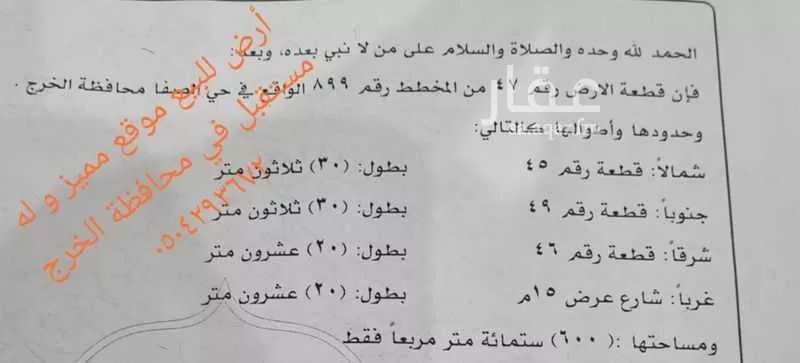 الحمد لله وحده والصلاة والسلام على من لا نبي بعده، وبعد:
فإن قطعة الارض رقم ٤٧ من المخطط رقم ٨٩٩ الواقع في حي الصفا محافظة الخرج .
وحدودها وأطوالها كالتالي:
شمالاً: قطعة رقم ٤٥ بطول: (٣٠) ثلاثون متر
جنوباً: قطعة رقم ٤٩ بطول: (٣٠) ثلاثون متر
شرقاً: قطعة رقم ٤٦ بطول: (٢٠) عشرون متر
غرباً: شارع عرض ١٥م بطول: (٢٠) عشرون متر
ومساحتها :(٦٠٠) ستمائة متر مربعاً فقط
أرض للبيع موقع مميز وله
مستقبل في محافظة الخرج
٠٥٠٤٢٩٣٦٧٢
عقار